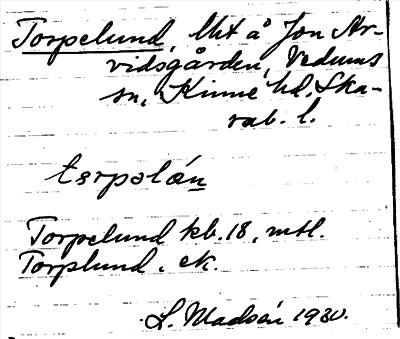 Torpelund, lht å Jon Ar-
vidsgården, Vedums
sn, Kinne hd. Ska-
rab. l.
tɵrpəlán
Torpelund kb. 18, mtl.
Torplund. ek.
L. Madsén 1930.